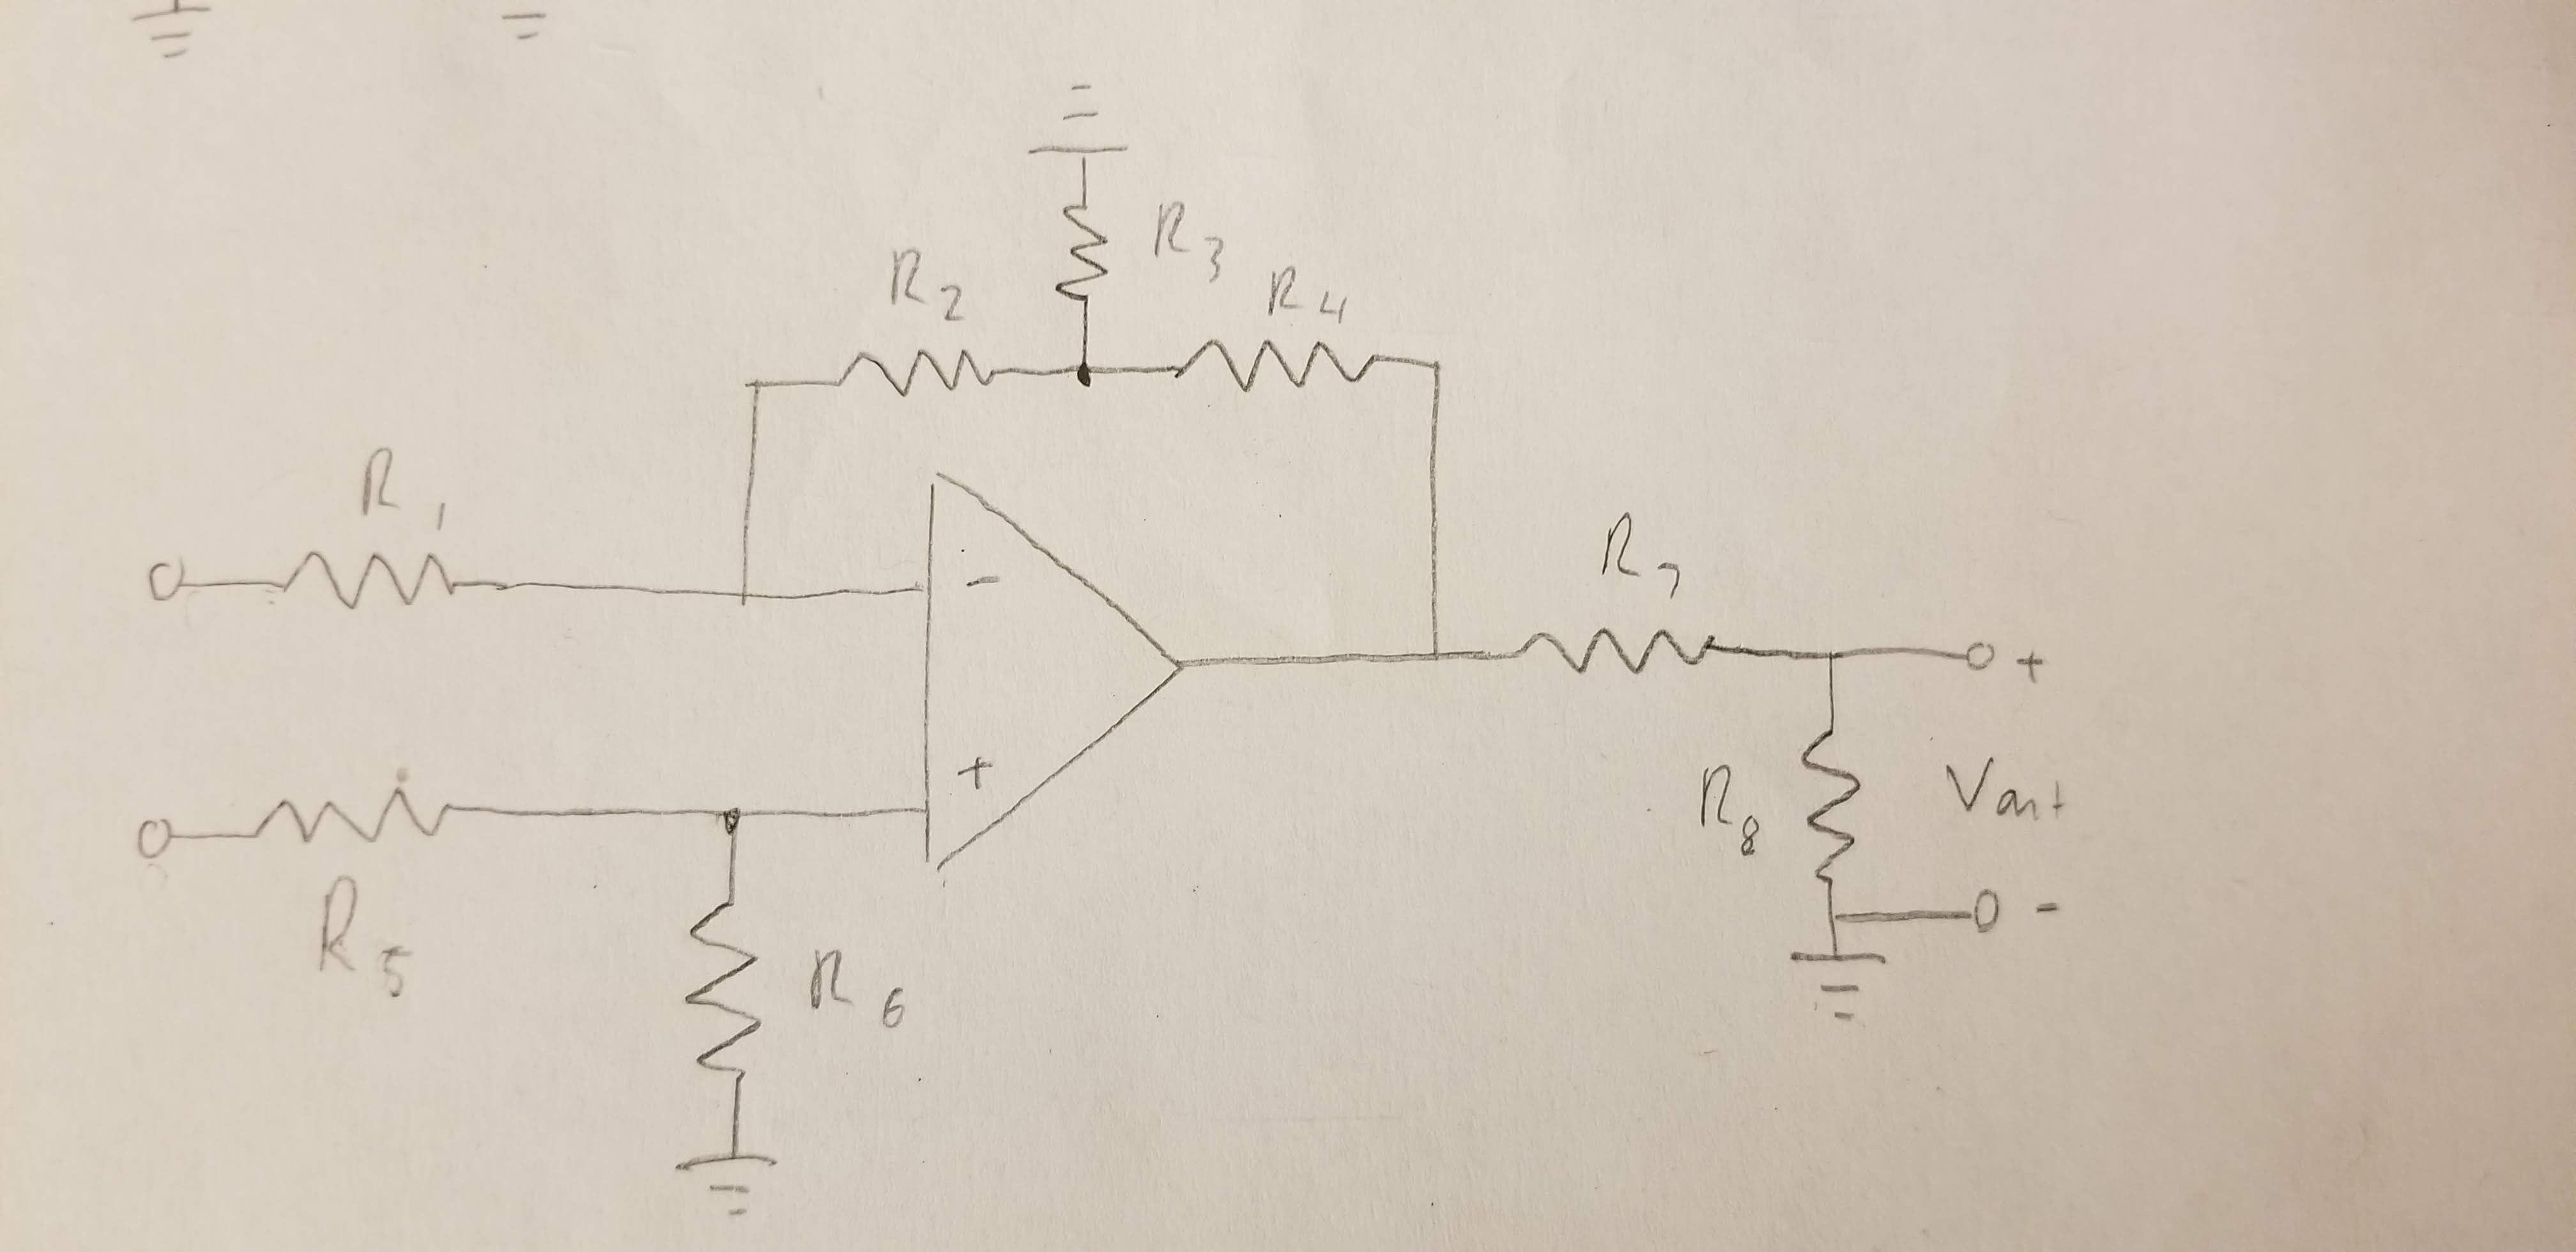 R3
R2
R4
R1
-
R7
+
+
R8
Vout
R5
-
R6